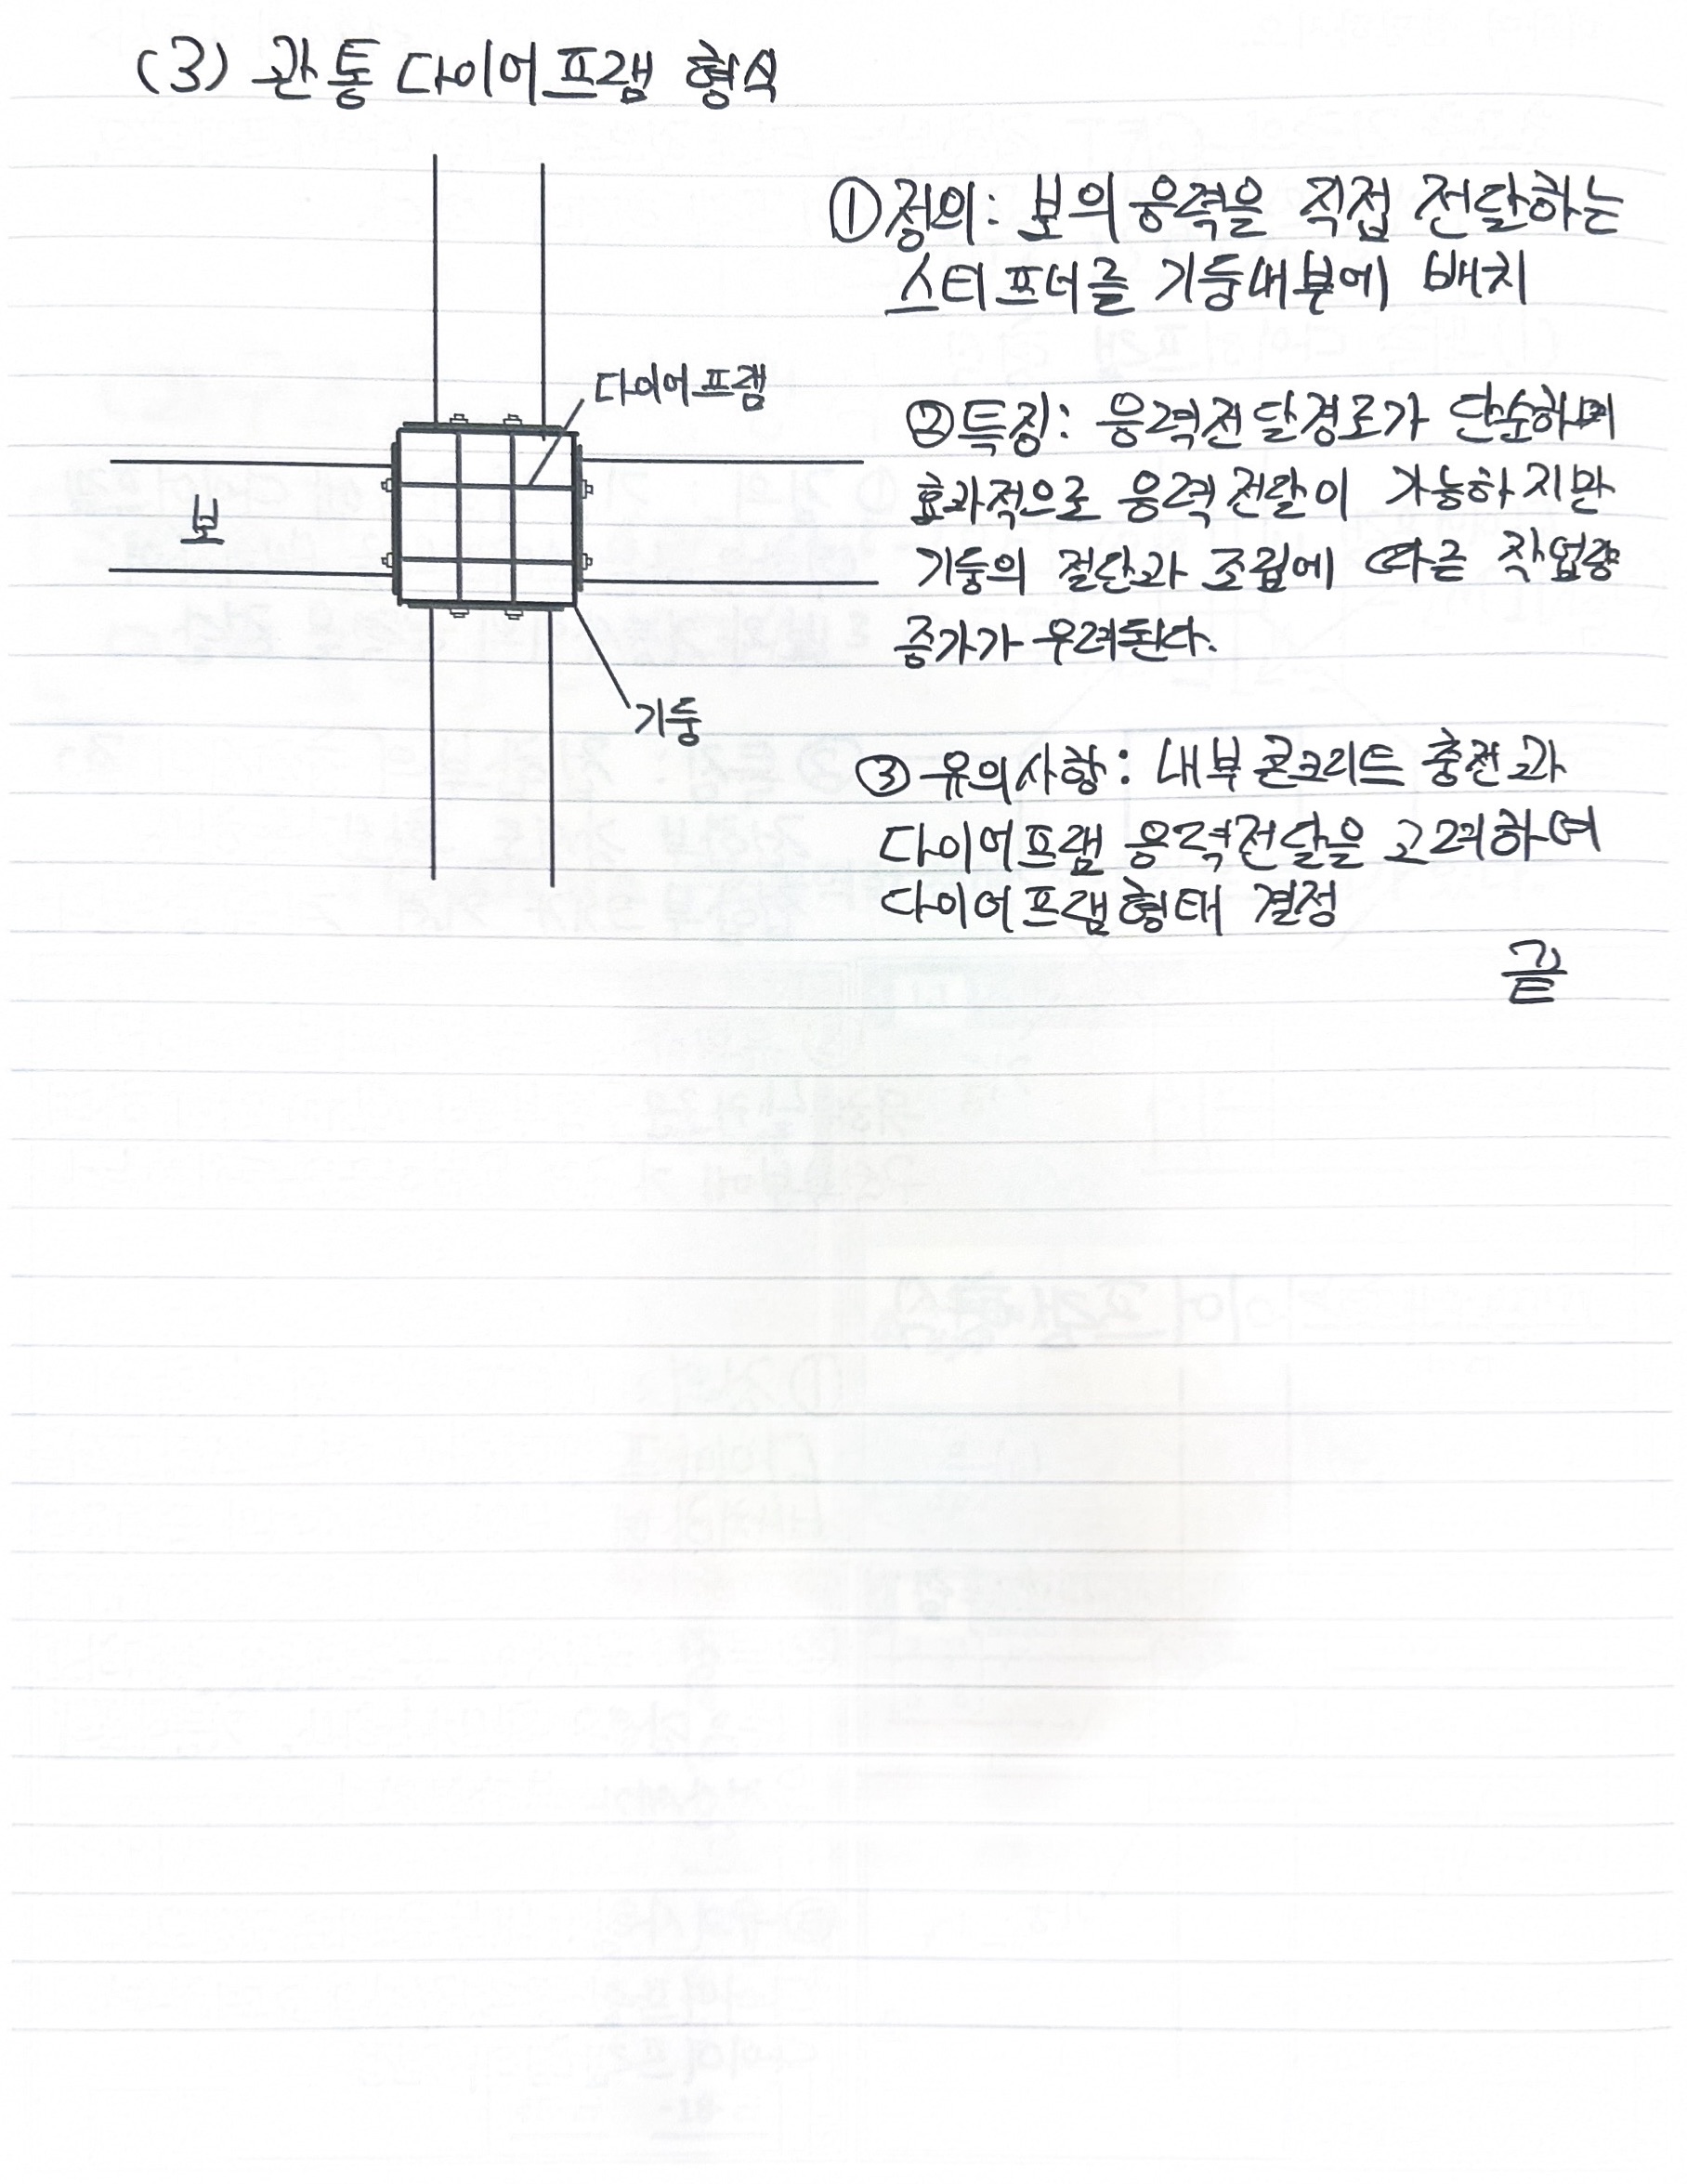 (3) 관통 다이어프램 형식
① 정의: 보의 응력을 직접 전달하는
스티프너를 기둥내부에 배치
다이어프램
보
기둥
② 특징: 응력전달경로가 단순하며
효과적으로 응력전달이 가능하지만
기둥의 절단과 조립에 따른 작업량
증가가 우려된다.
③ 유의사항: 내부 콘크리트 충전과
다이어프램 응력전달을 고려하여
다이어프램형태 결정
끝